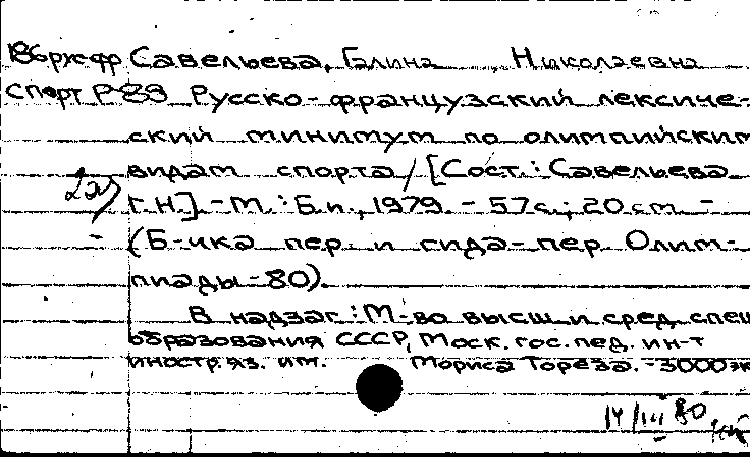 186русфр Савельева, Галина Николаевна
спорт Р-89 Русско-французский лексиче-
ский минимум по олимпийским
видам спорта/[Сост.: Савельева
Г.Н.].-М.: Б.и., 1979. - 57с.; 20см. -
(Б-чка пер. и гида-пер. Олим-
пиады-80).
В надзаг.: М-во высш и сред. спец
образования СССР, Моск. гос. пед. ин-т
иностр. яз. им. Мориса Тореза. - 3000эк
14/III 80